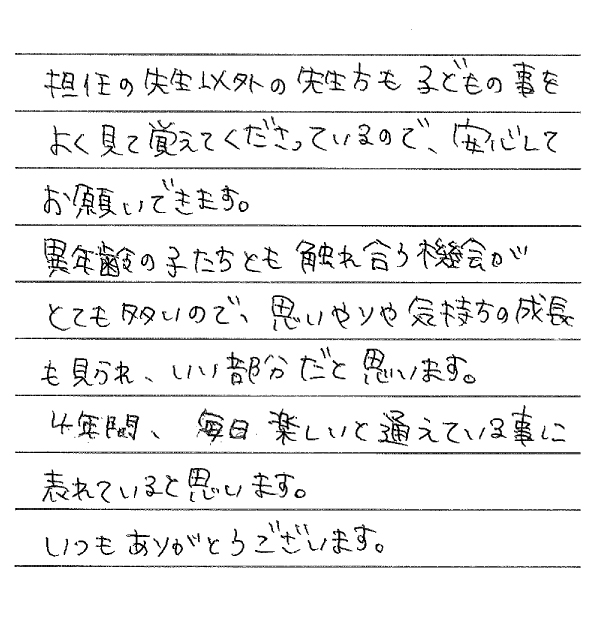 担任の先生以外の先生方も子どもの事を
よく見て覚えてくださっているので、安心して
お願いできます。
異年齢の子たちとも触れ合う機会が
とても多いので、思いやりや気持ちの成長
も見られ、いい部分だと思います。
4年間、毎日楽しいと通えている事に
表れていると思います。
いつもありがとうございます。